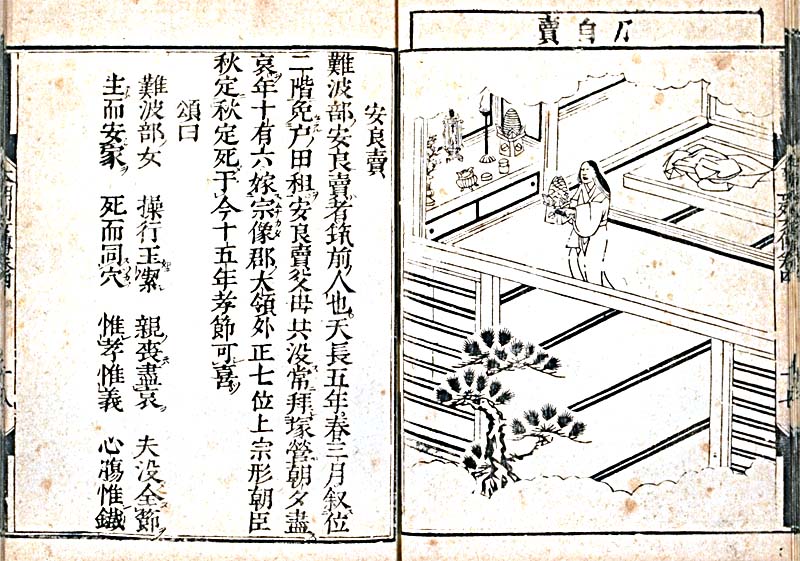 刀自賣
安良賣
難波部安良賣者筑前人也天長五年春三月叙位
二階免戸田租安良賣父母共没常拜塚營朝夕盡
哀年十有六嫁宗像郡大領外正七位上宗形朝臣
秋定秋定死于今十五年孝節可喜
頌曰
難波部女 操行玉潔 親喪盡哀 夫没全節
生而安家 死而同穴 惟孝惟義 心膓惟鐵